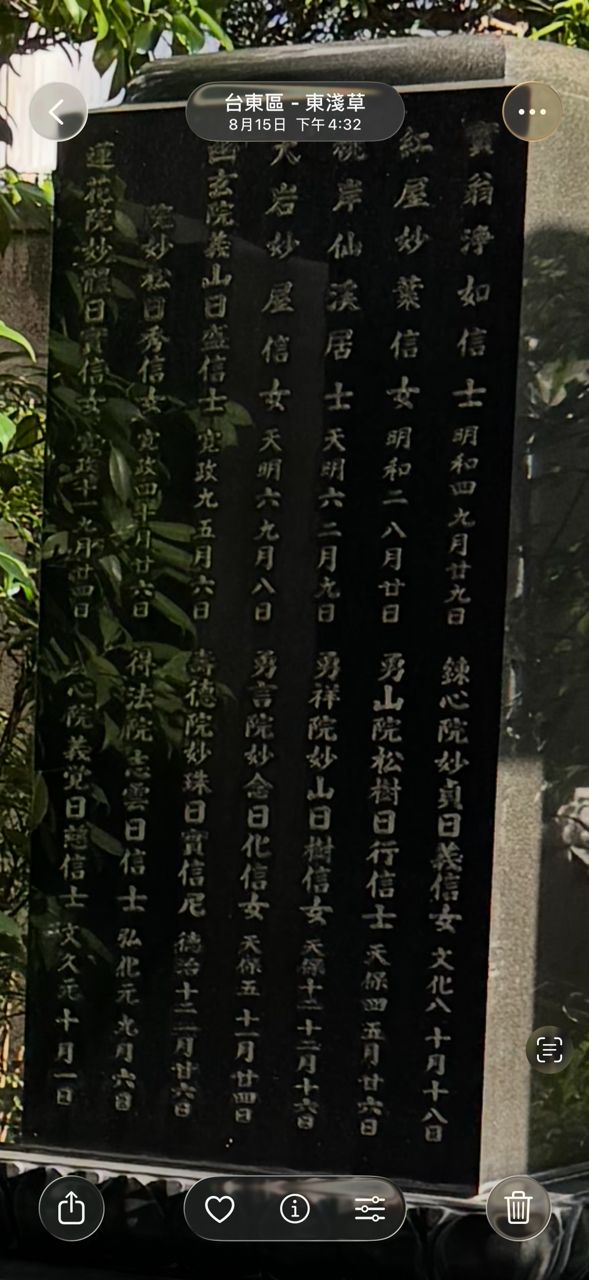 台東區 - 東淺草
8月15日 下午4:32
寶翁淨如信士 明和四九月廿九日
紅屋妙葉信女 明和二八月廿日
岸仙溪居士 天明六二月九日
大岩妙屋信女 天明六九月八日
幽玄院義山日盛信士 寛政九五月六日
院妙松日秀信女 寛政四十月廿六日
蓮花院妙體日實信女 寛政十一九月廿四日
鍊心院妙貞日義信女 文化八十月十八日
勇山院松樹日行信士 天保四五月廿六日
勇祥院妙山日樹信女 天保十二十二月十六日
勇言院妙念日化信女 天保五十一月廿四日
壽德院妙珠日實信尼 十二月廿六日
得法院志雲日信士 弘化元九月六日
心院義覚日遊信士 文久元十月一日